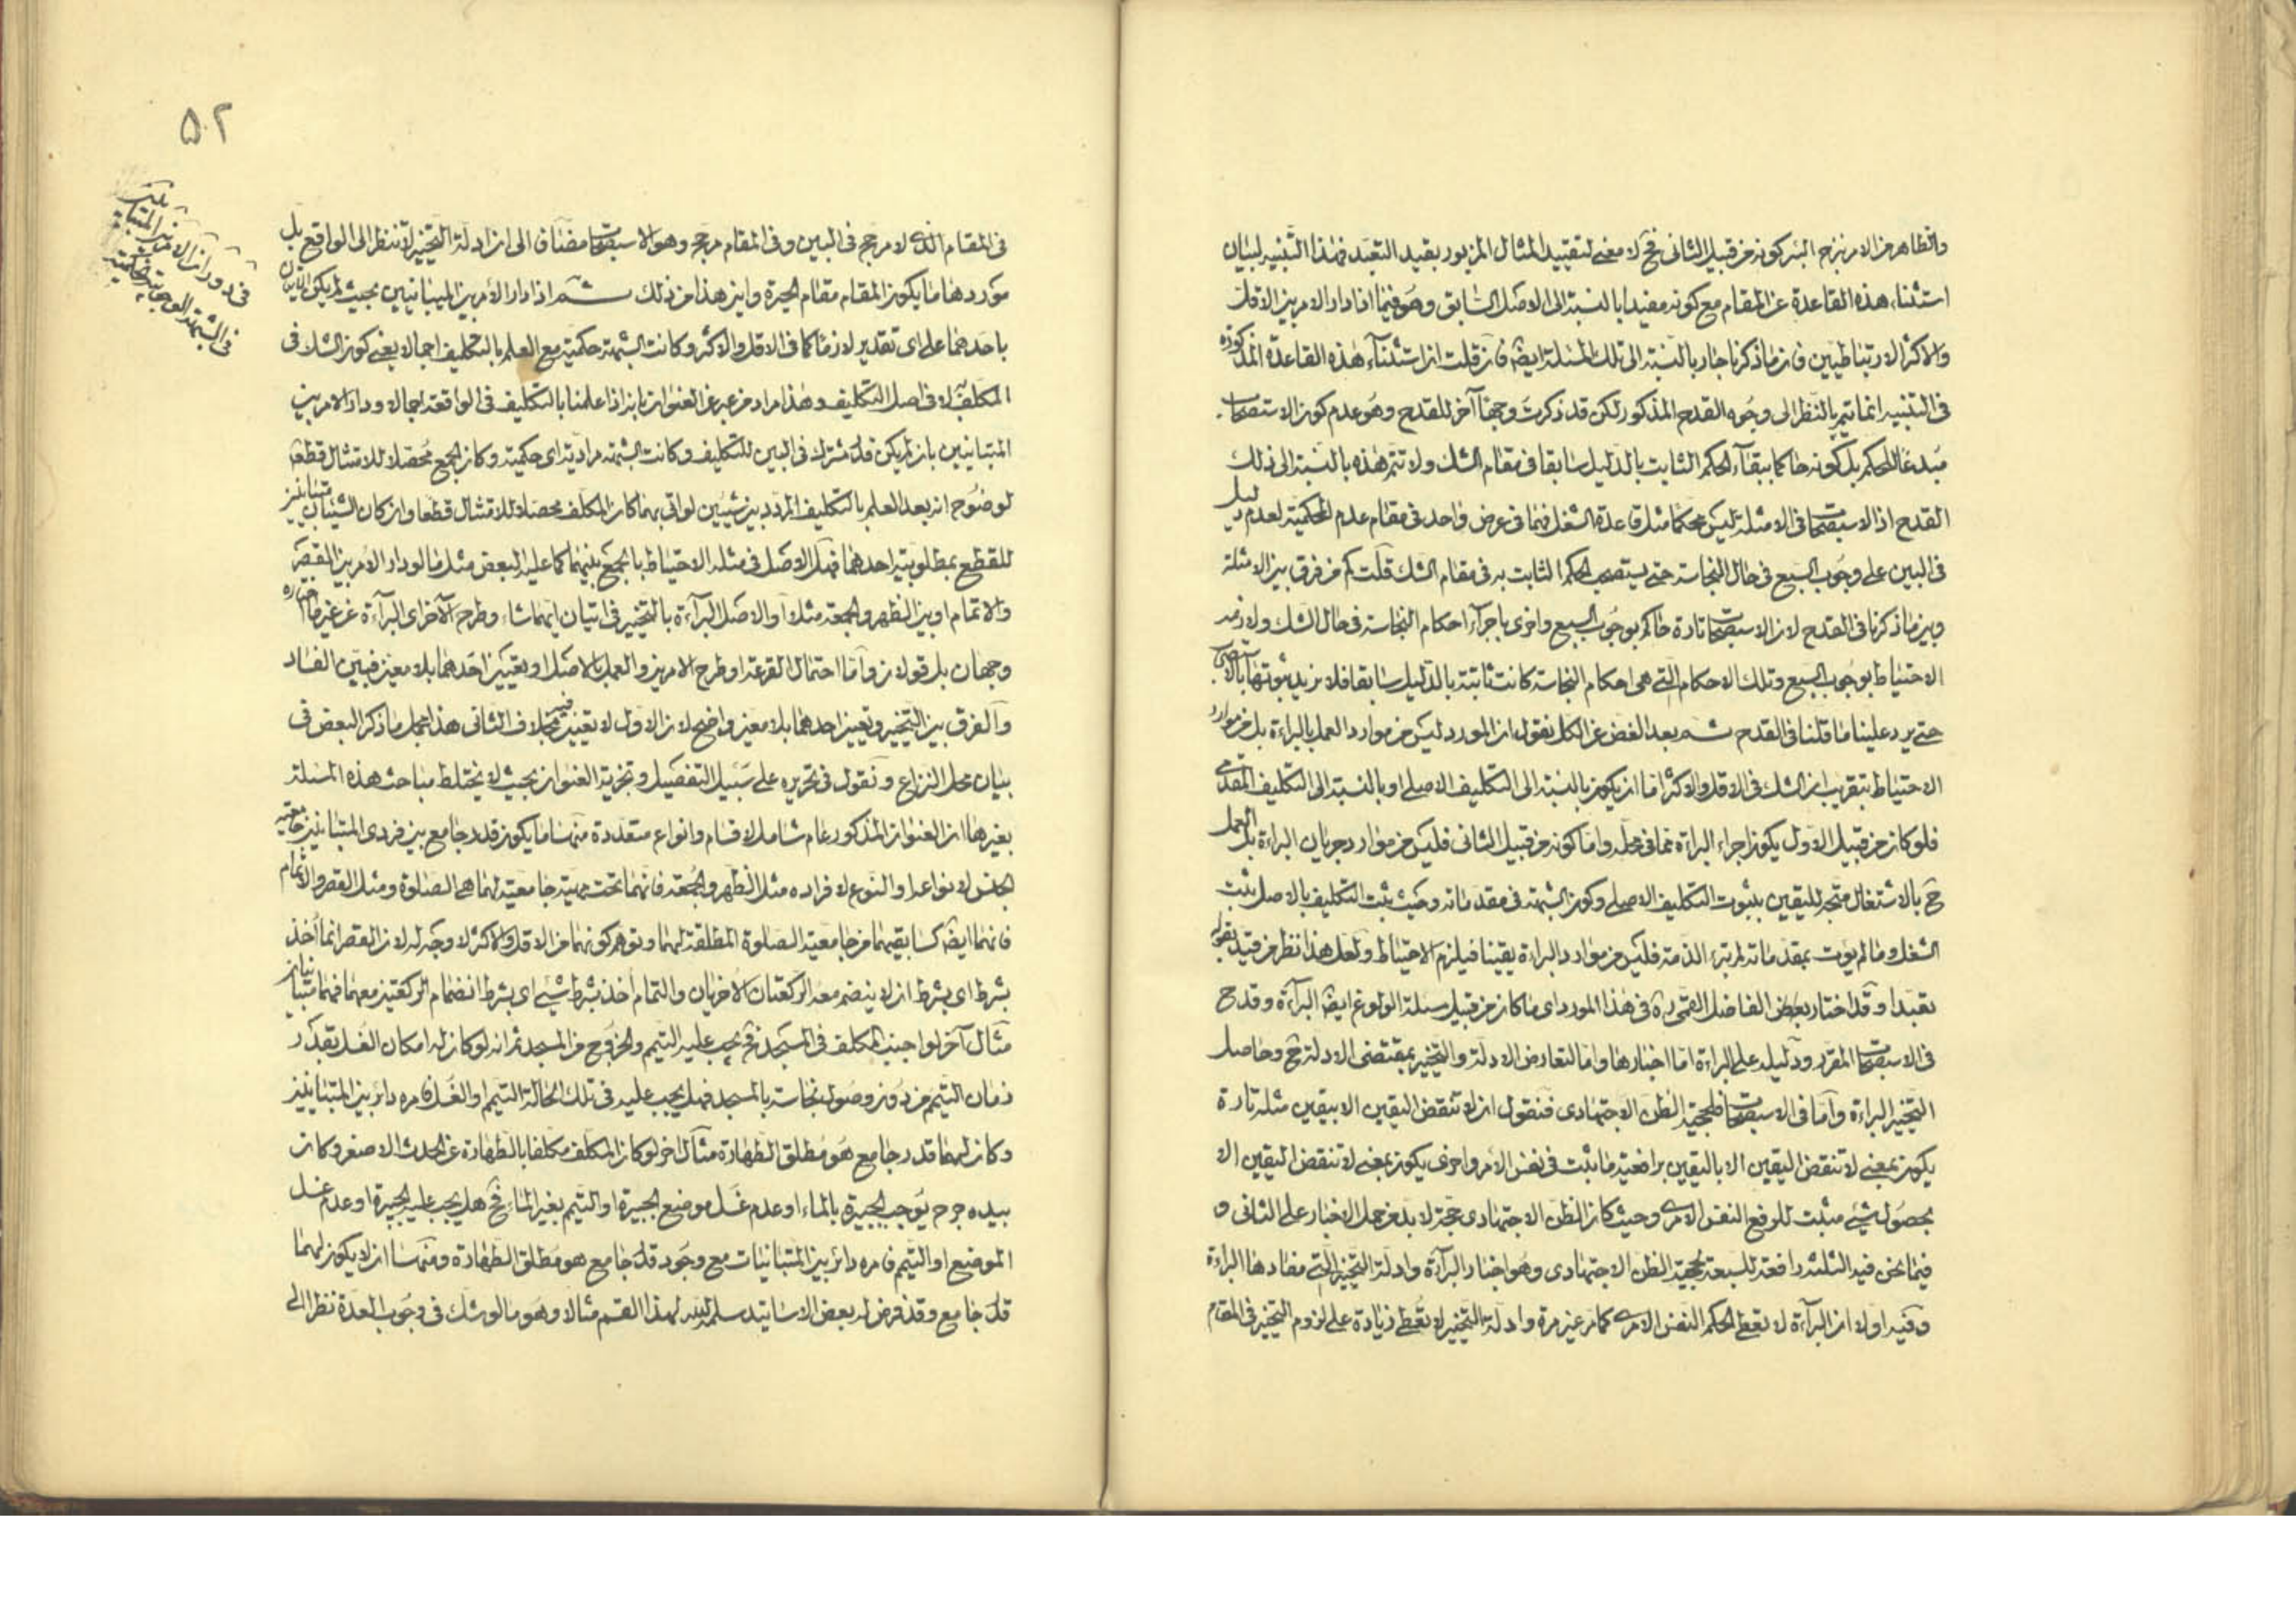 والظاهر من الامرين هو كونه من قبيل الثاني فح لا معنى لتقييد المثال المزبور بقيد التعبد فهذا التنبيه لبيان
استثناء هذه القاعدة عن المقام مع كونه مفيدا بالنسبة الى الاصل السابق وهو فيما اذا دار الامر بين الاقل
والاكثر الارتباطيين فان ما ذكرنا جار بالنسبة الى تلك المسئلة ايضا فان قلت ان استثناء هذه القاعدة المذكورة
في التنبيه انما يتم بالنظر الى وجوه القدح المذكور لكن قد ذكرت وجها آخر للقدح وهو عدم كون الاستصحاب
مبدعا للحكم بل كونه حاكما ببقاء الحكم الثابت بالدليل سابقا في مقام الشك ولا تتم هذه بالنسبة الى ذلك
القدح اذ الاستصحاب في الامثلة ليس محكما مثل قاعدة الشغل فهما في عرض واحد في مقام عدم الحكمية لعدم دليل
في البين على وجوب السبع في حال النجاسة حتى يستصحب الحكم الثابت به في مقام الشك قلت كم من فرق بين الامثلة
وبين ما ذكرنا في القدح لان الاستصحاب تارة حاكم بوجوب السبع واخرى باجراء احكام النجاسة في حال الشك ولازمه
الاحتياط بوجوب السبع وتلك الاحكام التي هي احكام النجاسة كانت ثابتة بالدليل سابقا فلا نريد ثبوتها بالاستصحاب
حتى يرد علينا ما قلنا في القدح ثم بعد الغض عن الكل نقول ان المورد ليس من موارد العمل بالبراءة بل من موارد
الاحتياط بتقريب ان الشك في الاقل والاكثر اما ان يكون بالنسبة الى التكليف الاصلي او بالنسبة الى التكليف المقدمي
فلو كان من قبيل الاول يكون اجراء البراءة مما في محله واما كونه من قبيل الثاني فليس من موارد جريان البراءة بل العمل
ح بالاشتغال متجه لليقين بثبوت التكليف الاصلي وكون الشبهة في مقدماته وحيث ثبت التكليف بالاصل ثبت
الشغل وما لم يؤت بمقدماته لم تبرء الذمة فليس من موارد البراءة يقينا فيلزم الاحتياط ولعل هذا نظر من قيد بقوله
تعبدا وقد اختار بعض الفاضل القمي ره في هذا المورد اي ما كان من قبيل مسئلة الولوغ ايضا البراءة وقدح
في الاستصحاب المقرر ودليله على البراءة اما اخبارها واما لتعارض الادلة والتخيير بمقتضى الادلة ح وحاصل
التخيير البراءة واما في الاستصحاب فلحجية الظن الاجتهادي فنقول ان لا تنقض اليقين الا بيقين مثله تارة
يكون بمعنى لا تنقض اليقين الا باليقين برافعية ما يثبت في نفس الامر واخرى يكون بمعنى لا تنقض اليقين الا
بحصول شيء مثبت للرفع النفس الامري وحيث كان الظن الاجتهادي حجة لا بد من حمل الاخبار على الثاني و
فيما نحن فيه الثلثة رافعة للسبعة بحجية الظن الاجتهادي وهو اخبار البراءة وادلة التخيير التي مفادها البراءة
وفيه اولا ان البراءة لا تعطي الحكم النفس الامري كما مر غير مرة وادلة التخيير لا تعطي زيادة على لزوم التخيير في المقام
۵۲
في المقام الذي لا مرجح في البين وفي المقام مرجح وهو الاستصحاب مضافا الى ان ادلة التخيير لا ننظر الى الواقع بل
موردها ما يكون المقام مقام الحيرة واين هذا من ذلك ثم اذا دار الامر بين المتباينين بحيث لم يكن
باحدهما على اى تقدير لازما كما في الاقل والاكثر وكانت الشبهة حكمية مع العلم بالتكليف اجمالا يعني كون الشك في
المكلف به لا في اصل التكليف وهذا مراد من عبر عن العنوان بانه اذا علمنا بالتكليف في الواقعة اجمالا ودار الامر بين
المتباينين بان لم يكن قدر مشترك في البين للتكليف وكانت الشبهة مرادية اى حكمية وكان الجمع محصلا للامتثال قطعا
لوضوح انه بعد العلم بالتكليف المردد بين شيئين لو اتى بهما كان المكلف محصلا للامتثال قطعا وان كان الشيئان متباينين
للقطع بمطلوبية احدهما فهل الاصل في مثله الاحتياط بالجمع بينهما كما عليه البعض مثل ما لو دار الامر بين القصر
والاتمام او بين الظهر والجمعة مثلا او الاصل البراءة بالتخيير في اتيان ايهما شاء وطرح الآخر اى البراءة عن غير ما اختاره
وجهان بل قولان واما احتمال القرعة او طرح الامرين والعمل بالاصل او تعيين احدهما بلا معين فبين الفساد
والفرق بين التخيير وتعيين احدهما بلا معين واضح لان الاول لا تعيين فيه بخلاف الثاني هذا مجمل ما ذكر البعض في
بيان محل النزاع ونقول في تحريره على سبيل التفصيل وتجزية العنوان بحيث لا يختلط مباحث هذه المسئلة
بغيرها ان العنوان المذكور عام شامل لاقسام وانواع متعددة منها ما يكون قدر جامع بين فردي المتباينين جامعية
الجنس لانواعه او النوع لافراده مثل الظهر والجمعة فانهما تحت مهية جامعية لهما هي الصلوة ومثل القصر والاتمام
فانهما ايضا كسابقيهما من جامعية الصلوة المطلقة لهما وتوهم كونهما من الاقل والاكثر لا وجه له لان القصر انما اخذ
بشرط اى بشرط ان لا ينضم معه الركعتان الاخريان والتمام اخذ بشرط شيء اى بشرط انضمام الركعتين معهما فهما متباينان
مثال آخر لو اجنب المكلف في المسجد فح يجب عليه التيمم والخروج من المسجد ثم انه لو كان له امكان الغسل بقدر
زمان التيمم من دون وصول نجاسة بالمسجد فهل يجب عليه في تلك الحالة التيمم او الغسل فامره دائر بين المتباينين
وكان لهما قدر جامع هو مطلق الطهارة مثال اخر لو كان المكلف مكلفا بالطهارة عن الحدث الاصغر وكان
بيده جرح يوجب الجبيرة بالماء او عدم غسل موضع الجبيرة او التيمم بغير الماء فح هل يجب عليه الجبيرة او عدم غسل
الموضع او التيمم فامره دائر بين المتباينات مع وجود قدر جامع هو مطلق الطهارة ومنها ان لا يكون لهما
قدر جامع وقد فرض له بعض الاساتيد سلمه الله لهذا القسم مثالا وهو ما لو شك في وجوب العدة نظرا الى
في دوران الامر بين المتباينين
في الشبهة الوجوبية الحكمية